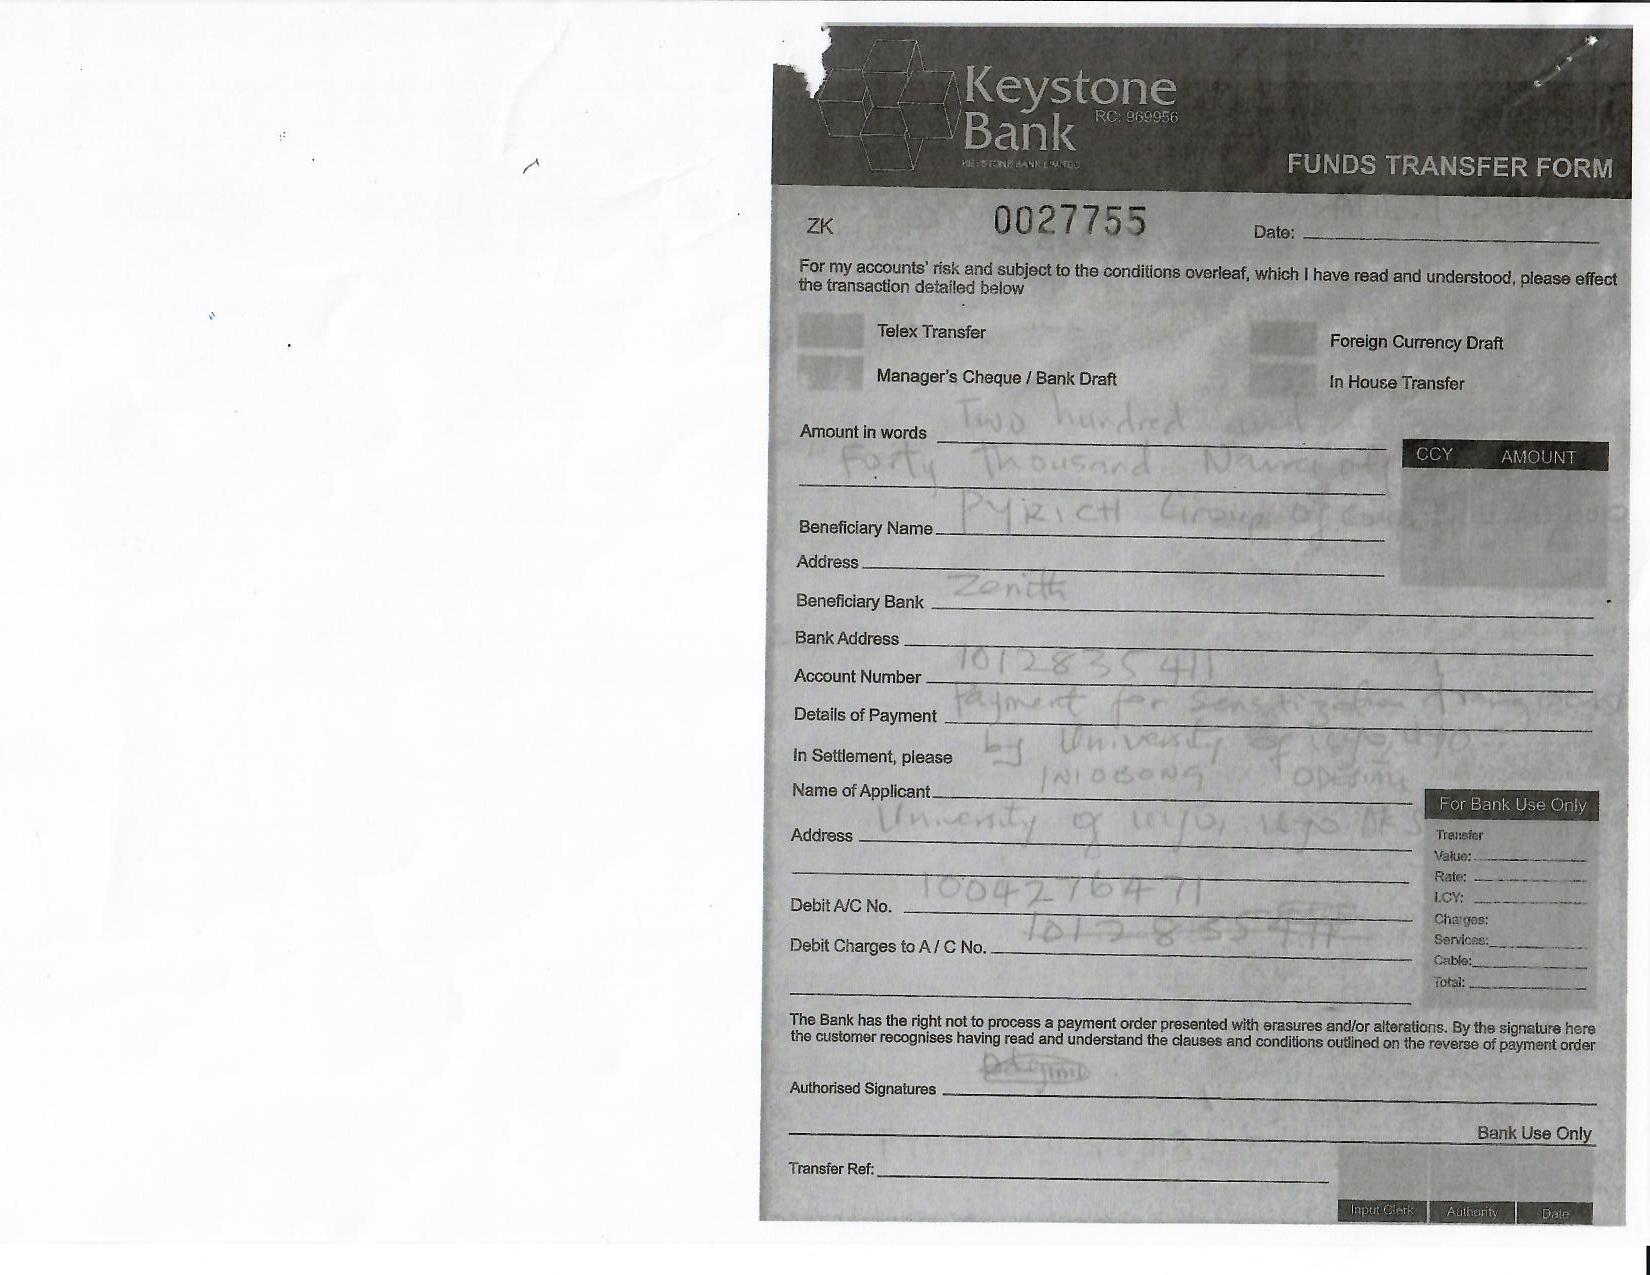 Keystone
Bank
RC: 969956
KEYSTONE BANK LIMITED
FUNDS TRANSFER FORM
ZK 0027755 Date:
For my accounts' risk and subject to the conditions overleaf, which I have read and understood, please effect
the transaction detailed below
Telex Transfer
Foreign Currency Draft
Manager's Cheque / Bank Draft
In House Transfer
Amount in words Two hundred and
Forty Thousand Naira only
CCY AMOUNT
Beneficiary Name PYRICH Group Of
Address
Beneficiary Bank Zenith
Bank Address
Account Number 1012835411
Details of Payment Payment for Sensitization
by University of Uyo, Uyo
In Settlement, please
Name of Applicant INIOBONG
For Bank Use Only
Address University of Uyo, Uyo. AKS
Transfer
Value:
Rate:
LCY:
Charges:
Services:
Cable:
Total:
Debit A/C No. 1004276471
Debit Charges to A / C No.
The Bank has the right not to process a payment order presented with erasures and/or alterations. By the signature here
the customer recognises having read and understand the clauses and conditions outlined on the reverse of payment order
Authorised Signatures
Bank Use Only
Transfer Ref:
Input Clerk Authority Date